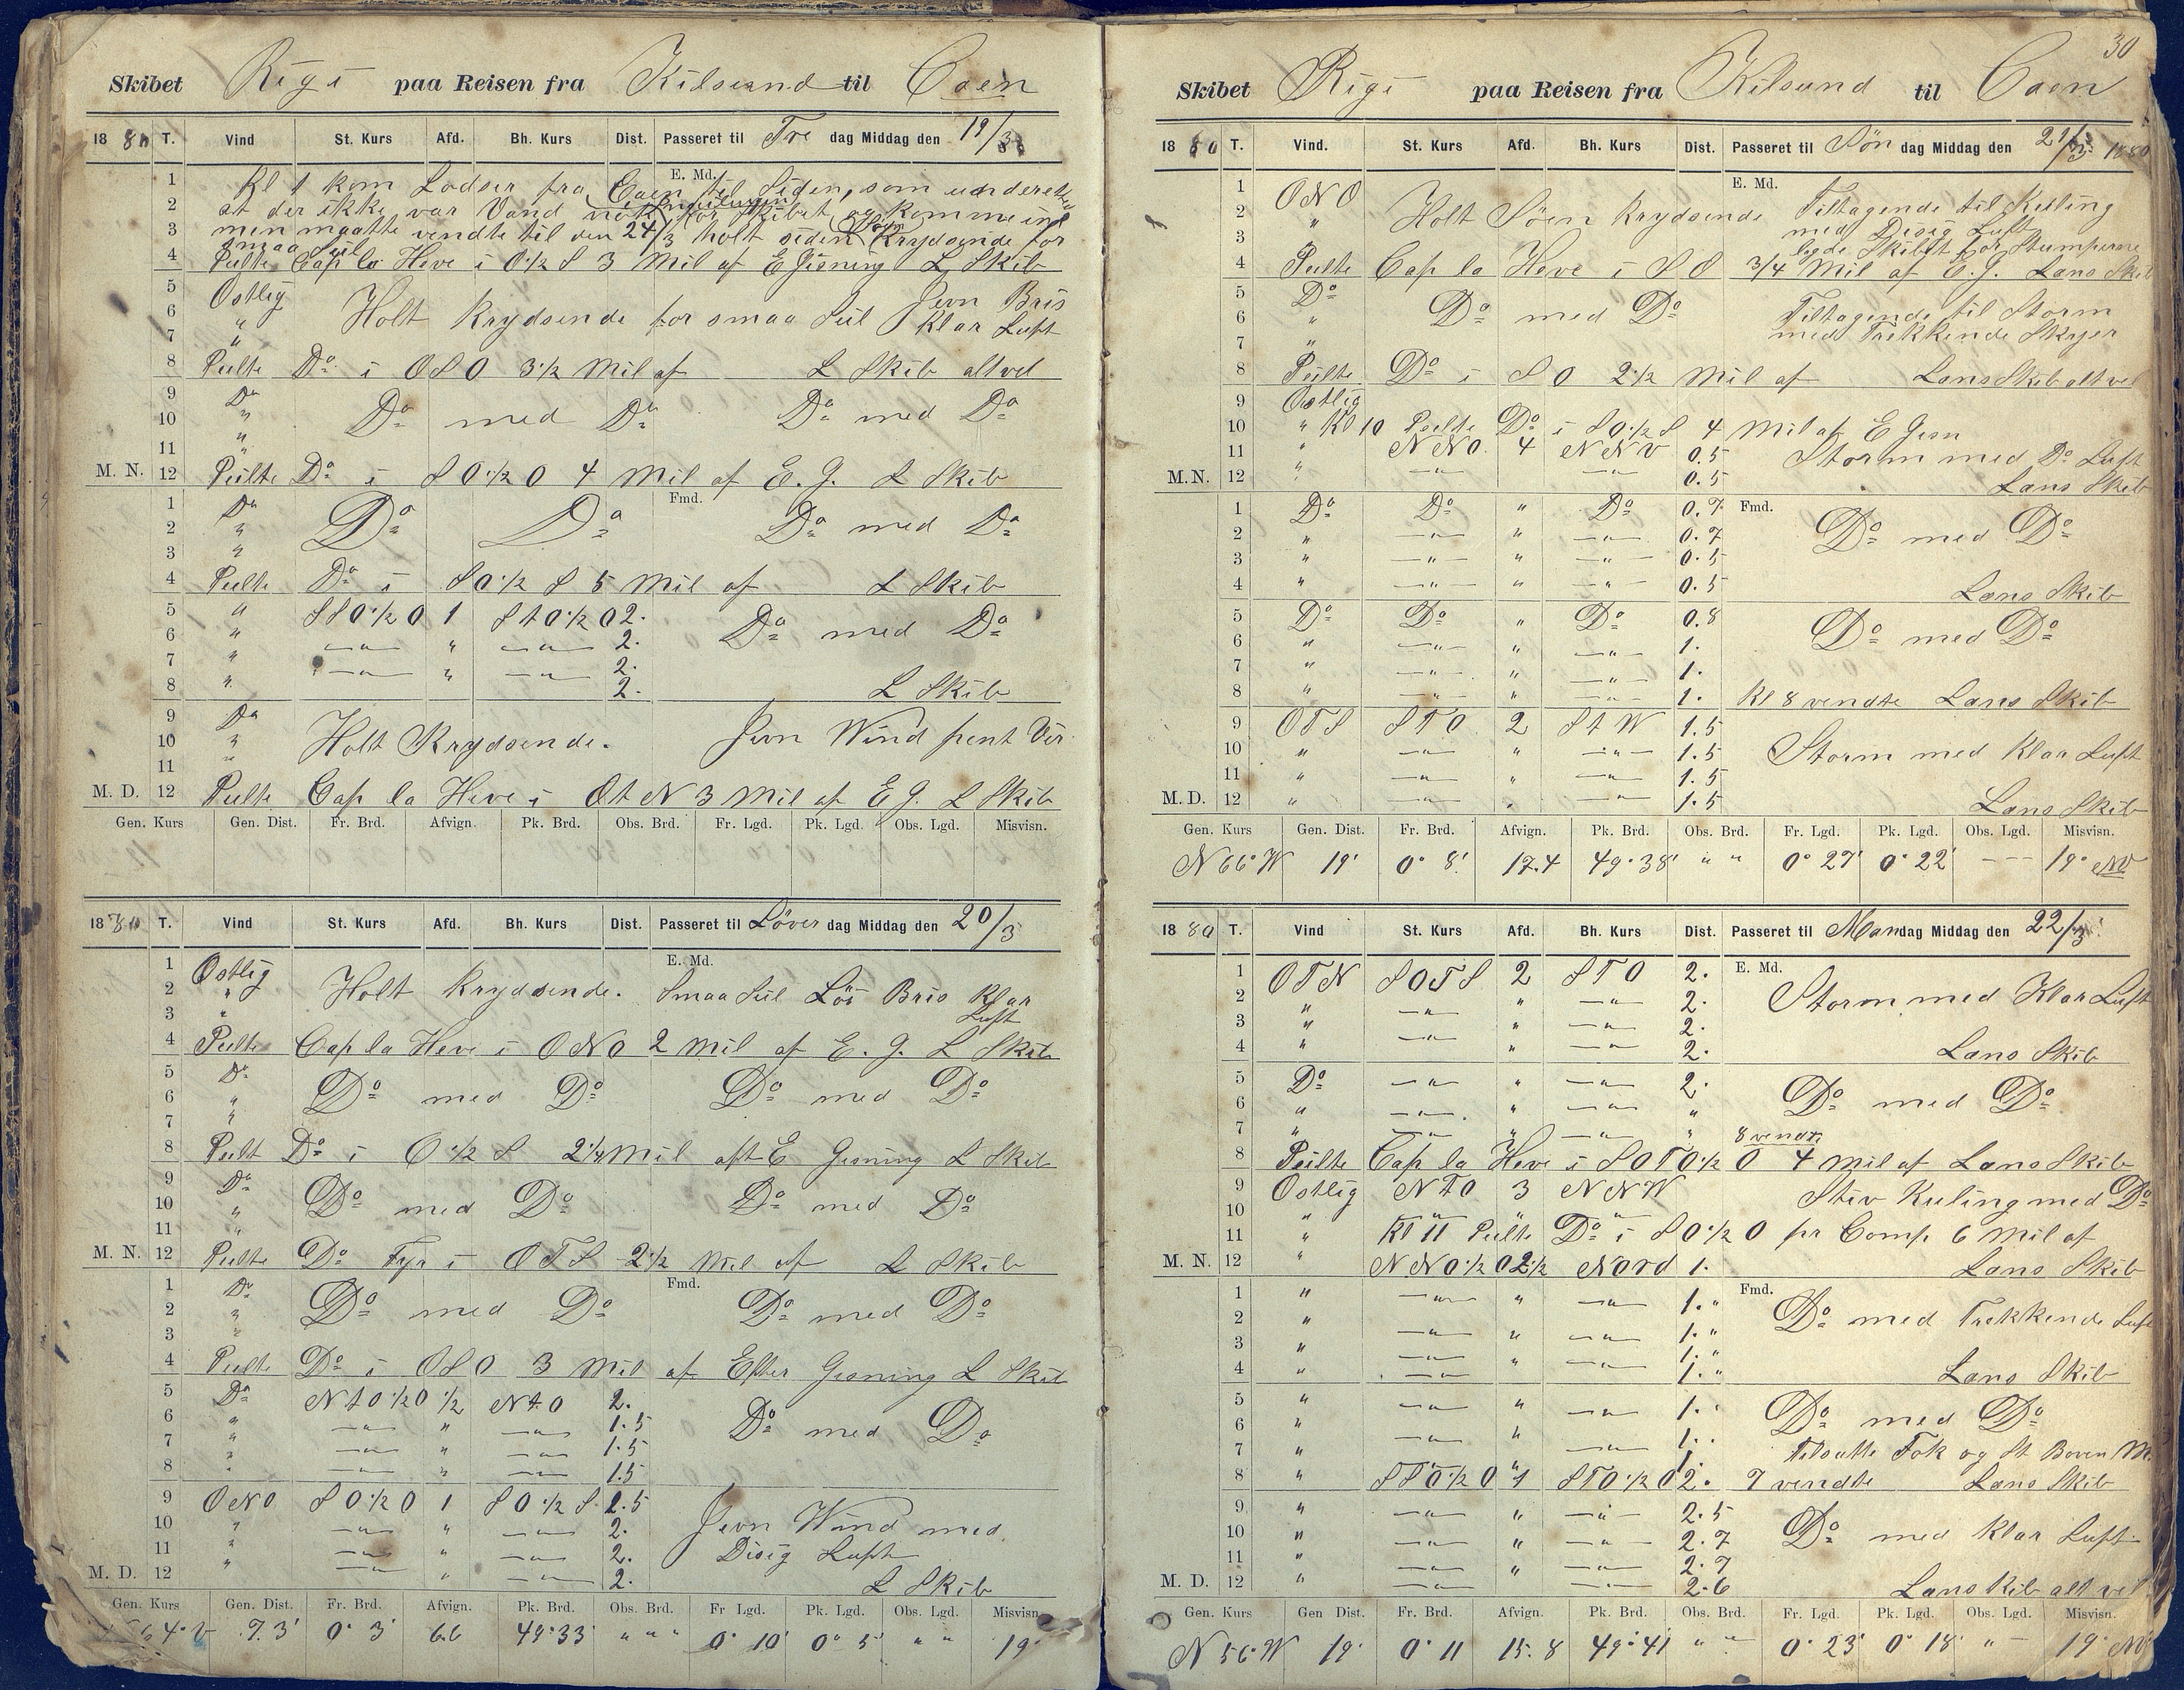 Skibet Rigi paa Reisen fra Kilsund til Caen
1880 T. Vind St. Kurs Afd. Bh. Kurs Dist. Passeret til Fre dag Middag den 19/3
E. Md.
1 Kl 1 kom Lodser fra Caen til Siden, som underettet
2 at der ikke var Vand nok for Skibet og komme ind
3 men maatte vendte til den 24/3 holt siden Krydsende for
smaa Seil
4 Peilte Cap la Heve i O ½ S 3 Mil af E Gisning L Skib
5 Ostlig Jevn Bris
6 " Holt Krydsende for smaa Seil Klar Luft
7 "
8 Peilte Do i OSO 3½ Mil af L Skib alt vel
9 Do
10 " Do med Do Do med Do
11 "
M. N. 12 Peilte Do i SO ½ O 4 Mil af E. G. L Skib
Fmd.
1 Do
2 " Do Do Do med Do
3 "
4 Peilte Do i SO ½ S 5 Mil af L Skib
5 " SSO ½ O 1 StO ½ O 2.
6 " —"— " —"— 2. Do med Do
7 " —"— " —"— 2.
8 " 2. L Skib
9 Do
10 " Holt Krydsende. Jevn Wind pent Veir
11 "
M. D. 12 Peilte Cap la Heve i OtN 3 Mil af E G. L Skib
Gen. Kurs Gen. Dist. Fr. Brd. Afvign. Pk. Brd. Obs. Brd. Fr. Lgd. Pk. Lgd. Obs. Lgd. Misvisn.
1880 T. Vind St. Kurs Afd. Bh. Kurs Dist. Passeret til Löver dag Middag den 20/3
E. Md.
1 Ostlig
2 " Holt Krydsende. Smaa Seil Löi Bris Klar
3 " Luft
4 Peilte Cap la Heve i ONO 2 Mil af E. G. L Skib
5 Do
6 " Do med Do Do med Do
7 "
8 Peilt Do i O ½ S 2¼ Mil aft E Gisning L Skib
9 Do
10 " Do med Do Do med Do
11 "
M. N. 12 Peilte Do Fyr i OTS 2½ Mil af L Skib
Fmd.
1 Do
2 " Do med Do Do med Do
3 "
4 Peilte Do i OSO 3 Mil af Efter Gisning L Skib
5 Do NtO ½ O ½ NtO 2.
6 " —"— " —"— 1.5 Do med Do
7 " —"— " —"— 1.5
8 " —"— " —"— 1.5
9 ONO SO ½ O 1 SO ½ S. 2.5
10 " —"— " —"— 2. Jevn Wind med
11 " —"— " —"— 2. Disig Luft
M. D. 12 " —"— " —"— 2. L Skib
Gen. Kurs Gen. Dist. Fr. Brd. Afvign. Pk. Brd. Obs. Brd. Fr Lgd. Pk. Lgd. Obs. Lgd. Misvisn.
7.3' 0° 3' 6.6 49°33' " " " 0° 10' 0° 5' " " 19°
30
Skibet Rigi paa Reisen fra Kilsund til Caen
1880 T. Vind. St. Kurs Afd. Bh. Kurs Dist. Passeret til Sön dag Middag den 21/3 1880
E. Md.
1 ONO Tiltagende til Kuling
2 " Holt Söen Krydsende med Disig Luft
3 lagde Skibet for Stumperne
4 Peilte Cap la Heve i SO 3/4 Mil af E. G. Lens Skib
5 Do
6 " Do med Do Tiltagende til Storm
7 " med Trekkende Skyer
8 Peilte Do i SO 2½ Mil af Lens Skib alt vel
9 Ostlig
10 " Kl 10 Peilte Do i SO ½ S 4 Mil af E Gisn
11 " NNO. 4 NNV 0.5 Storm med Do Luft
M.N. 12 " —"— —"— 0.5 Lens Skib
1 Do Do " Do 0.7 Fmd.
2 " —"— " —"— 0.7 Do med Do
3 " —"— " —"— 0.5
4 " —"— " —"— 0.5 Lens Skib
5 Do Do " Do 0.8
6 " —"— " —"— 1. Do med Do
7 " —"— " —"— 1.
8 " —"— " —"— 1. Kl 8 vendte Lens Skib
9 OTS STO 2 StW 1.5
10 " —"— " —"— 1.5 Storm med Klar Luft
11 " —"— " —"— 1.5
M.D. 12 " —"— " —"— 1.5 Lens Skib
Gen. Kurs Gen. Dist. Fr. Brd. Afvign. Pk. Brd. Obs. Brd. Fr. Lgd. Pk. Lgd. Obs. Lgd. Misvisn.
N 66° W 19' 0° 8' 17.4 49°38' " " 0° 27' 0° 22' – – – 19° NV
1880 T. Vind St. Kurs Afd. Bh. Kurs Dist. Passeret til Man dag Middag den 22/3
1 OTN SOTS 2 STO 2. E. Md.
2 " —"— " —"— 2. Storm med Klar Luft
3 " " —"— 2.
4 " —"— " —"— 2. Lens Skib
5 Do —"— " —"— 2.
6 " —"— " —"— " Do med Do
7 " —"— " —"— " 8 vendte
8 Peilte Cap la Heve i SOTO ½ O 4 Mil af Lens Skib
9 Ostlig NTO 3 NNW Stiv Kuling med Do
10 " " " "
11 " Kl 11 Peilte Do i SO ½ O pr Comp 6 Mil af
M. N. 12 " NNO ½ O 2½ Nord 1. Lens Skib
1 " —"— " —"— 1." Fmd.
2 " —"— " —"— 1." Do med Trekkende Luft
3 " —"— " —"— 1."
4 " —"— " —"— 1." Lens Skib
5 " —"— " —"— 1.
6 " —"— " —"— 1. Do med Do
7 " " 1. Tilsatte Fok og St Boven M.
8 " SSO ½ O 1 STO ½ O 2. 7 vendte Lens Skib
9 " —"— " —"— 2.5
10 " —"— " —"— 2.7 Do med Klar Luft
11 " —"— " —"— 2.7
M. D. 12 " —"— —"— 2.6 Lens Skib alt vel
Gen. Kurs Gen Dist. Fr. Brd. Afvign. Pk. Brd. Obs. Brd. Fr. Lgd. Pk. Lgd. Obs. Lgd. Misvisn.
N 56° W 19' 0° 11 15.8 49°41 " " 0° 23' 0° 18' " – 19° NV